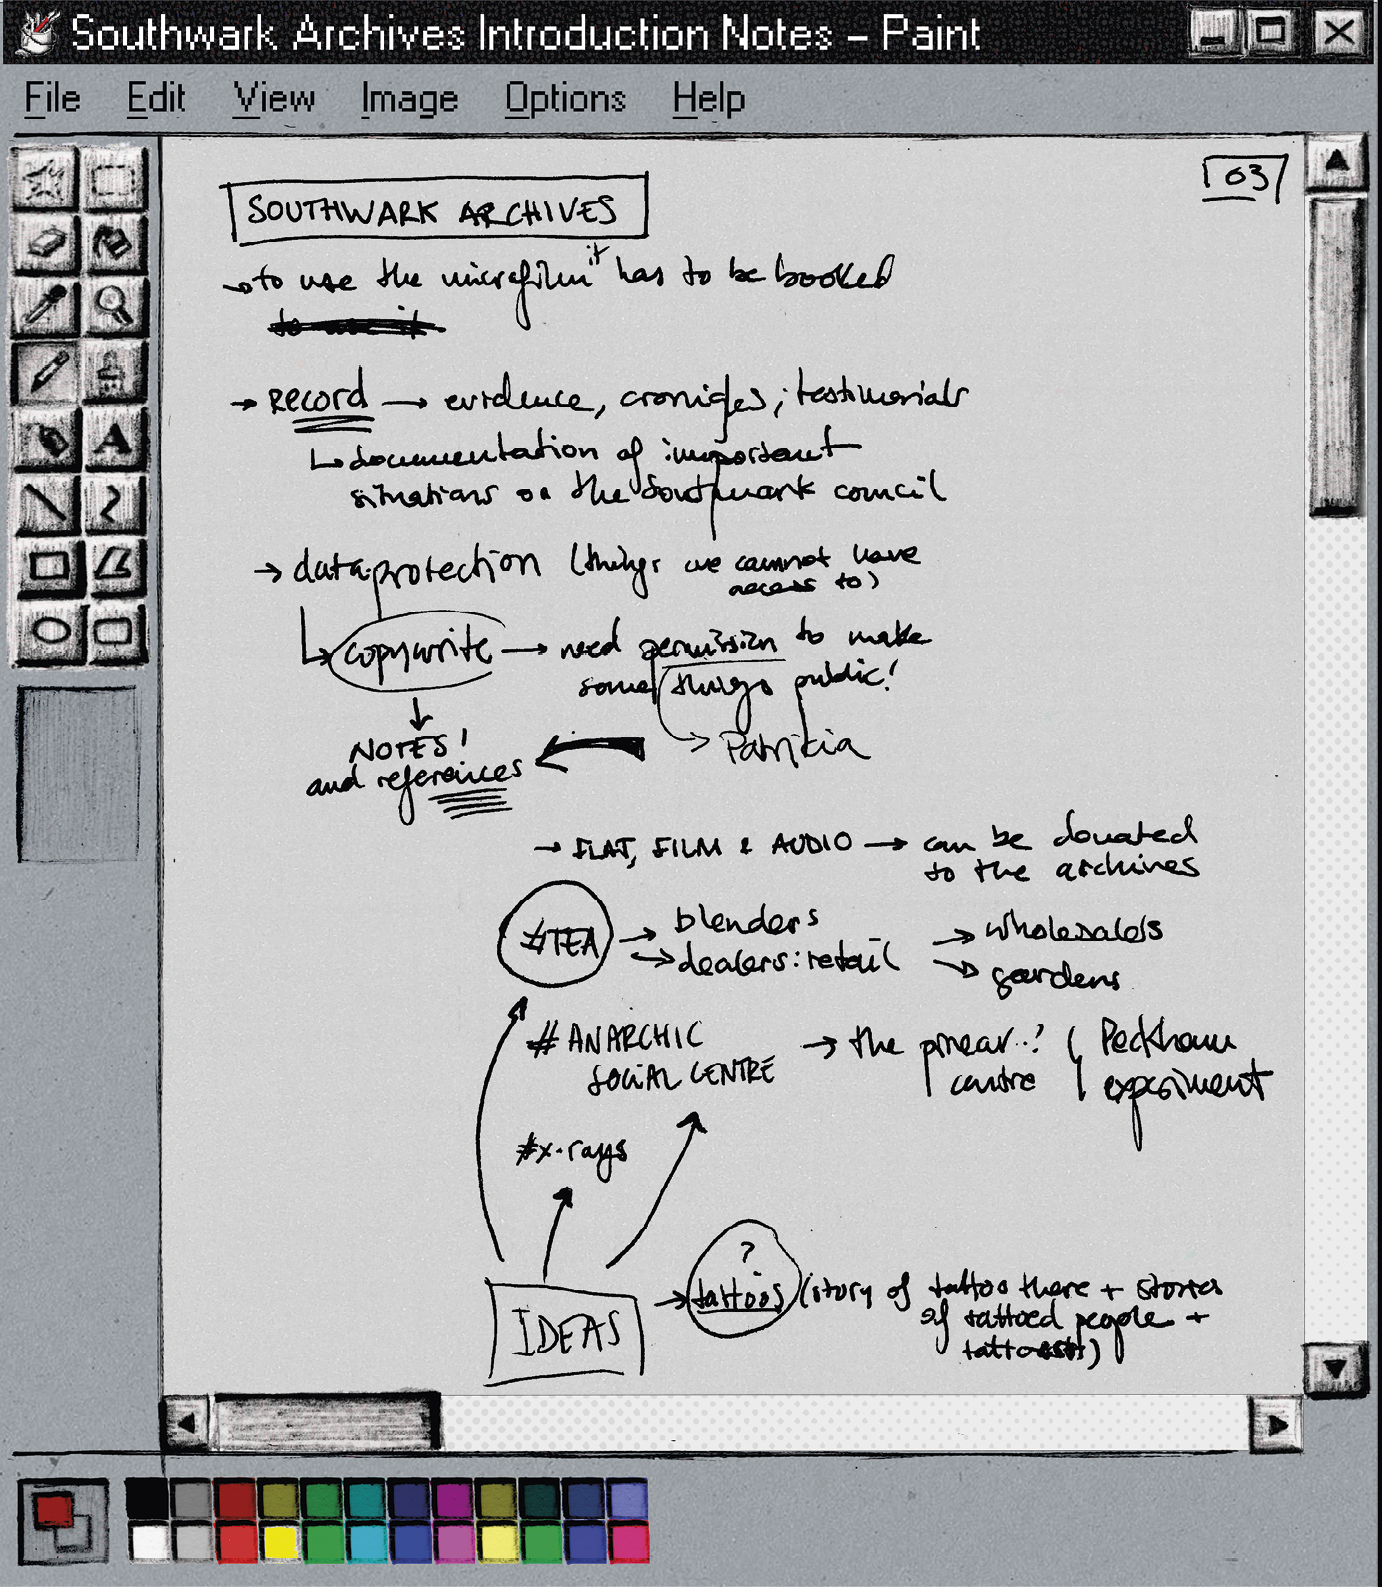 Southwark Archives Introduction Notes – Paint
File Edit View Image Options Help
03
SOUTHWARK ARCHIVES
→ to use the microfilm it has to be booked
to use it
→ record → evidence, croniques, testimonials
↳ documentation of important
situations on the Southwark council
→ data protection (things we cannot have
access to)
↳ copywrite → need permission to make
some things public!
→ Patricia
NOTES!
and references
→ FLAT, FILM & AUDIO → can be donated
to the archives
#TEA → blenders
→ dealers: retail → wholesalers
→ gardens
# ANARCHIC
SOCIAL CENTRE → the ..? centre ( Peckham
experiment
#x-rays
IDEAS
?
→ tattoos (story of tattoo there + stories
of tattoed people +